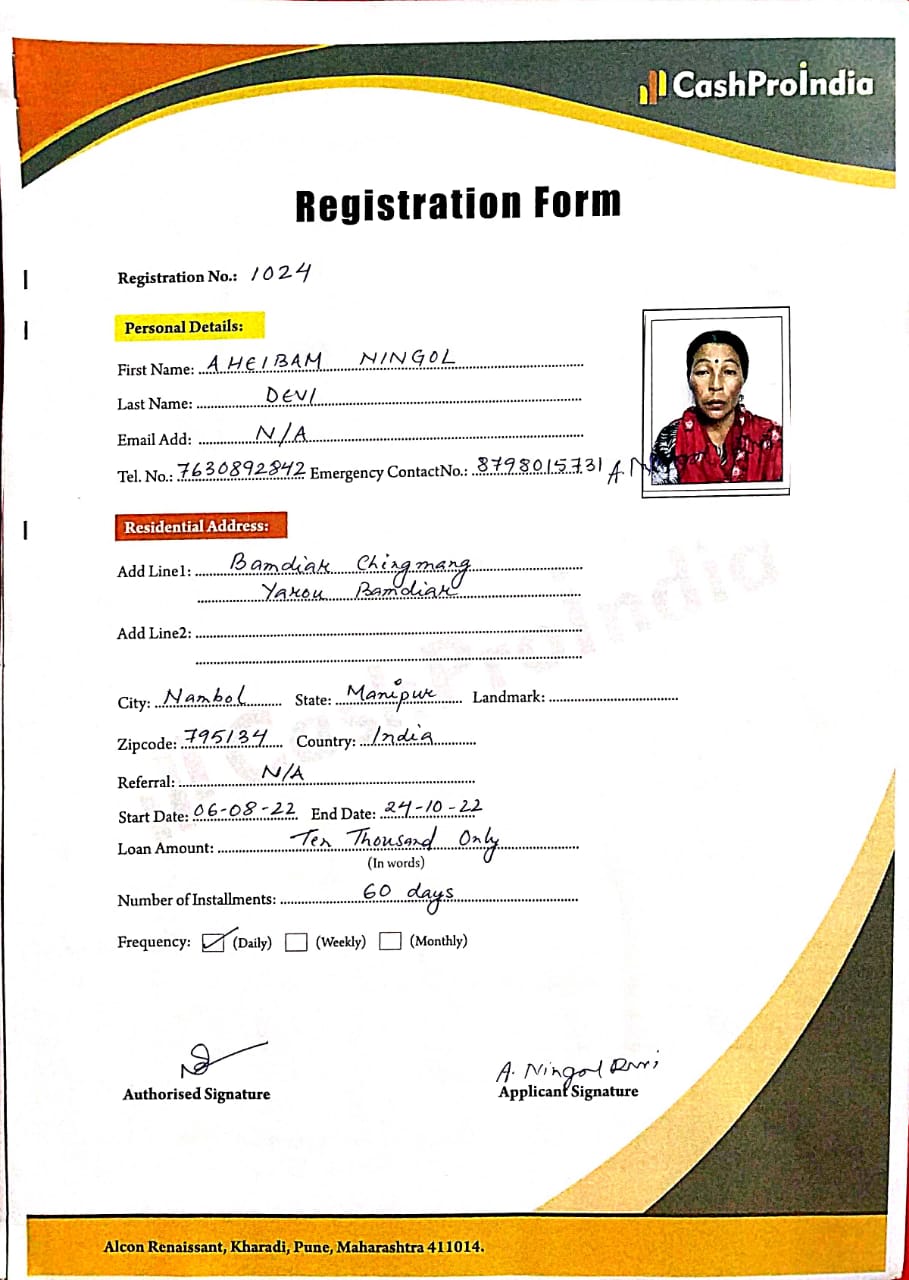 CashProIndia
Registration Form
Registration No.: 1024
Personal Details:
First Name: AHEIBAM NINGOL
Last Name: DEVI
Email Add: N/A
Tel. No.: 7630892842 Emergency ContactNo.: 8798015731
Residential Address:
Add Line1: Bamdiar Chingmang
Yarou Bamdiar
Add Line2:
City: Nambol State: Manipur Landmark:
Zipcode: 795134 Country: India
Referral: N/A
Start Date: 06-08-22 End Date: 24-10-22
Loan Amount: Ten Thousand Only
(In words)
Number of Installments: 60 days
Frequency: (Daily) (Weekly) (Monthly)
A. Ningol Devi
Authorised Signature Applicant Signature
Alcon Renaissant, Kharadi, Pune, Maharashtra 411014.